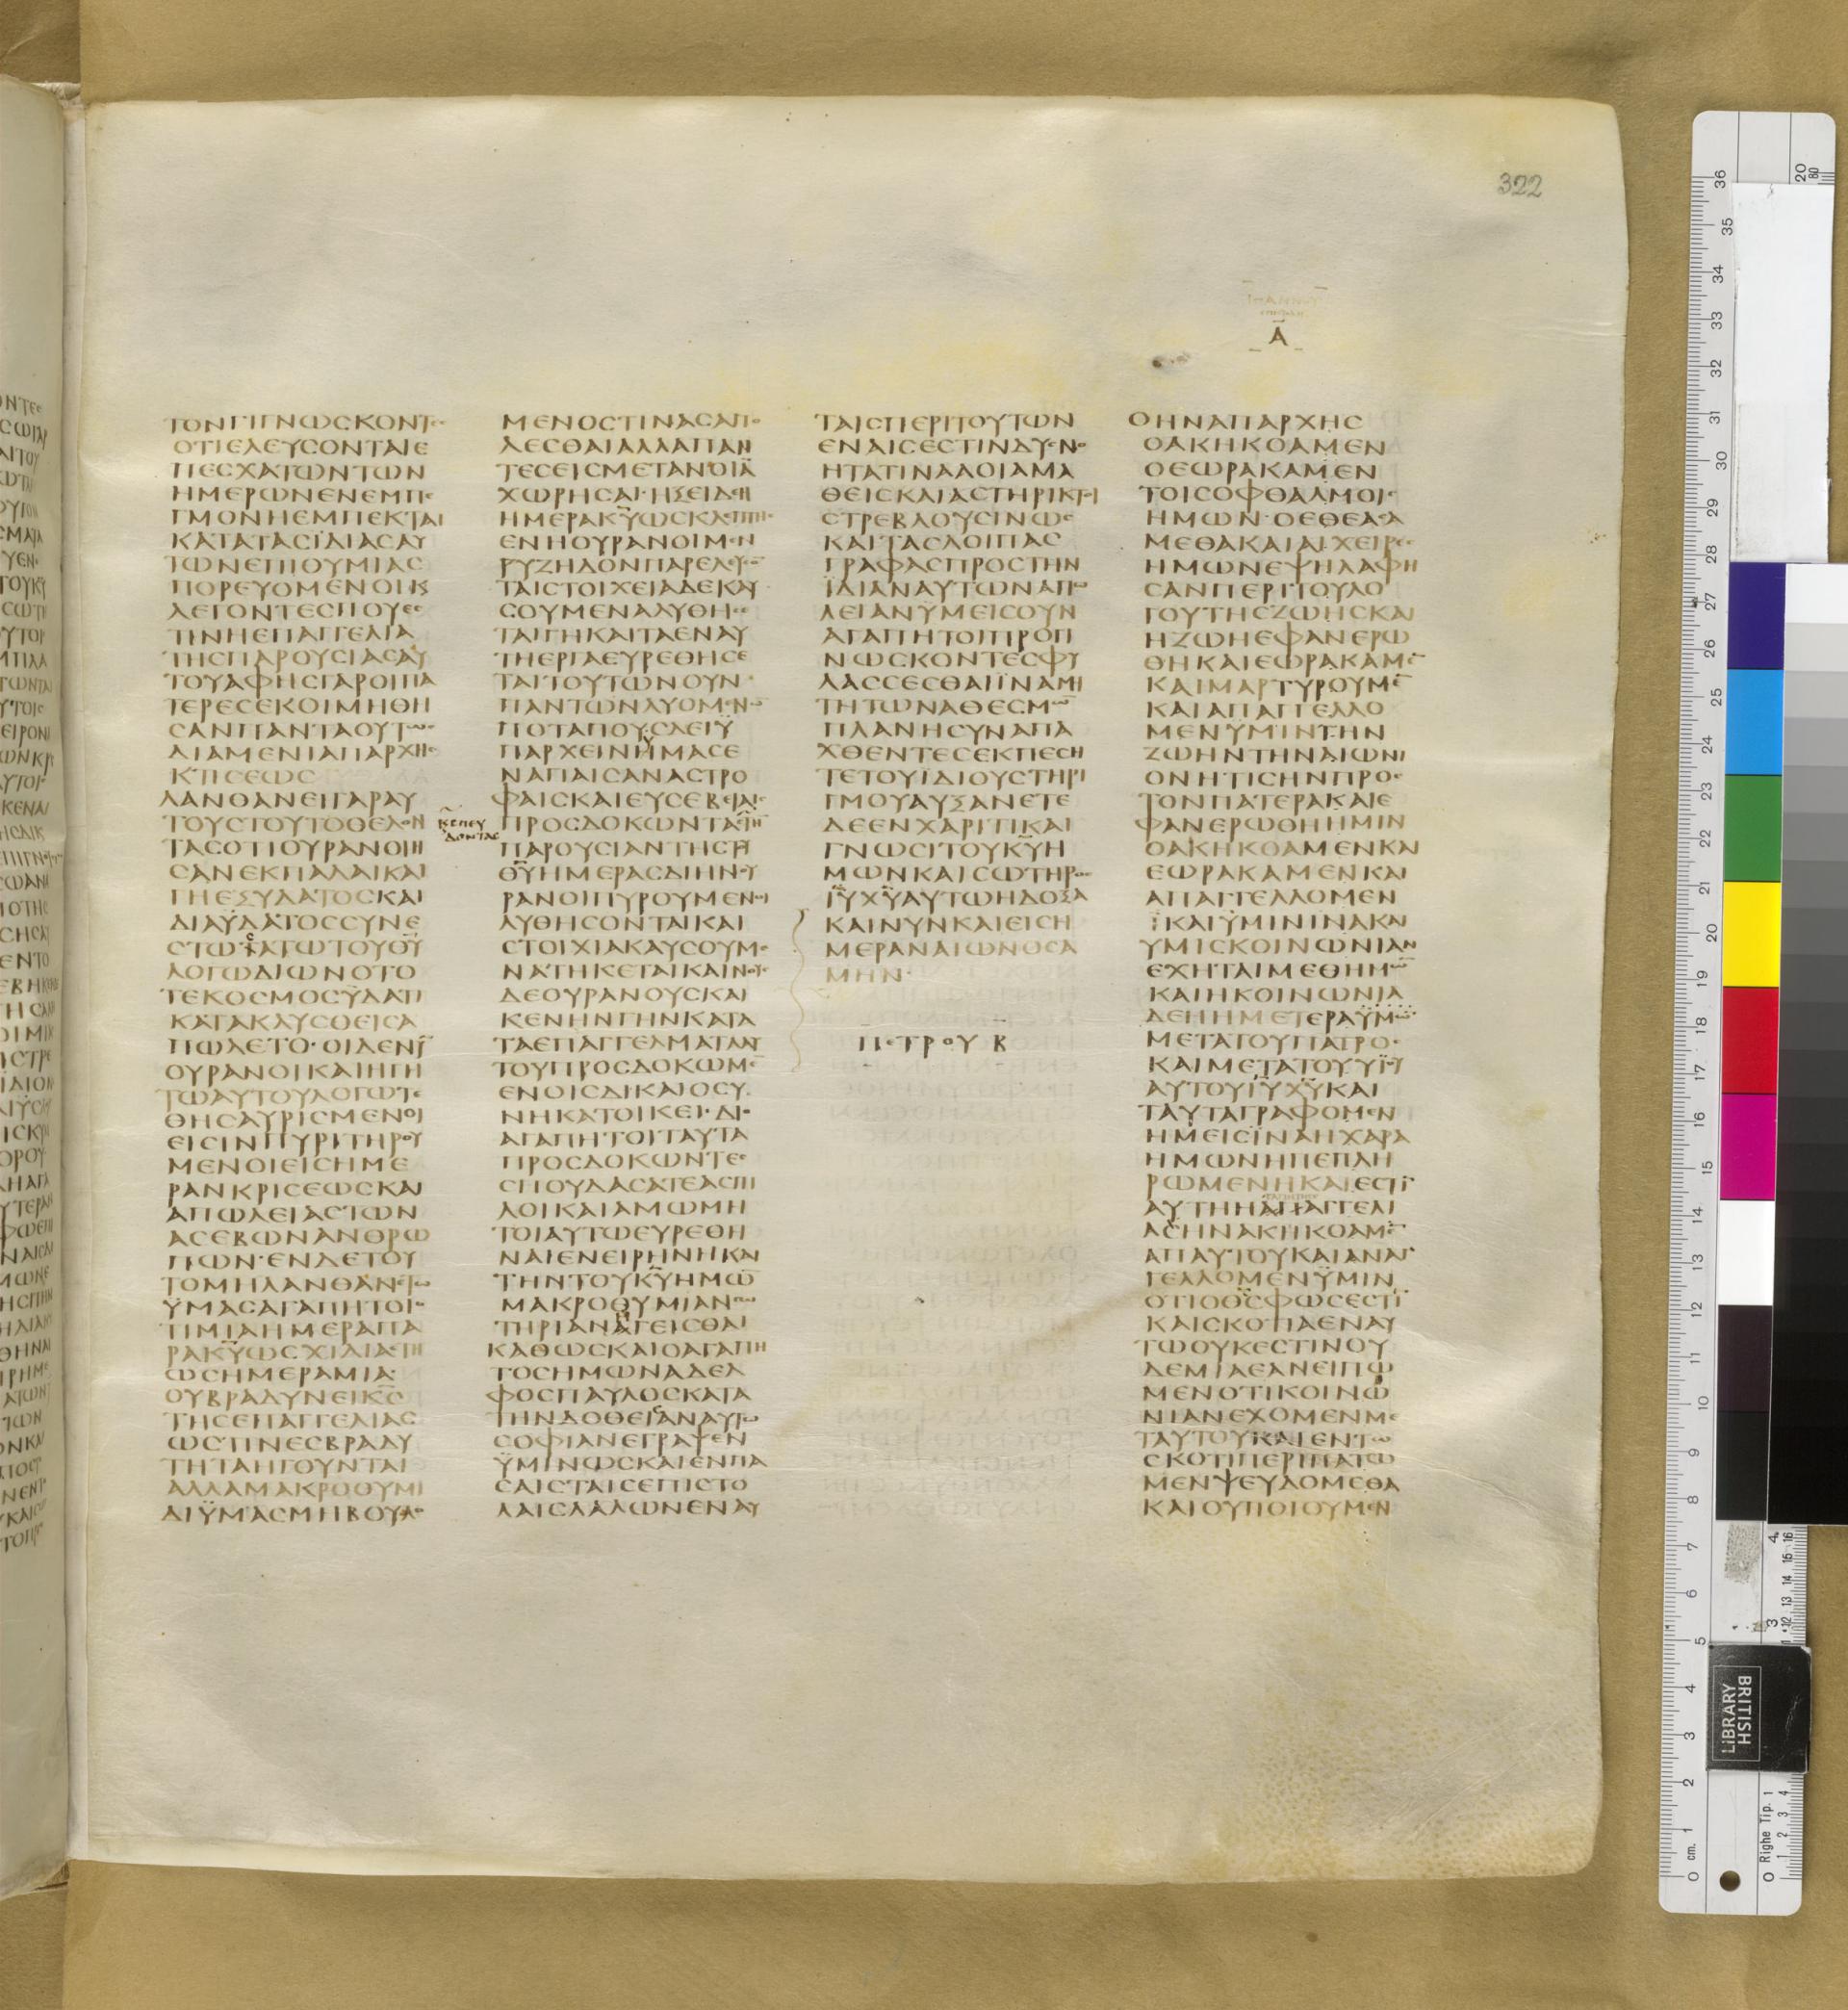 322
Α
ΤΟΝΓΙΓΝΩϹΚΟΝΤΕϹ
ΟΤΙΕΛΕΥϹΟΝΤΑΙΕ
ΠΕϹΧΑΤΩΝΤΩΝ
ΗΜΕΡΩΝΕΝΕΜΠΕ
ΓΜΟΝΗΕΜΠΕΚΤΑΙ
ΚΑΤΑΤΑϹΪΔΙΑϹΑΥ
ΤΩΝΕΠΙΘΥΜΙΑϹ
ΠΟΡΕΥΟΜΕΝΟΙΚ
ΛΕΓΟΝΤΕϹΠΟΥΕϹ
ΤΙΝΗΕΠΑΓΓΕΛΙΑ
ΤΗϹΠΑΡΟΥϹΙΑϹΑΥ
ΤΟΥΑΦΗϹΓΑΡΟΙΠΑ
ΤΕΡΕϹΕΚΟΙΜΗΘΗ
ϹΑΝΠΑΝΤΑΟΥΤΩϹ
ΔΙΑΜΕΝΙΑΠΑΡΧΗϹ
ΚΤΙϹΕΩϹ
ΛΑΝΘΑΝΕΙΓΑΡΑΥ
ΤΟΥϹΤΟΥΤΟΘΕΛΟΝ
ΤΑϹΟΤΙΟΥΡΑΝΟΙΗ
ϹΑΝΕΚΠΑΛΑΙΚΑΙ
ΓΗΕΞΥΔΑΤΟϹΚΑΙ
ΔΙΑΫΔΑΤΟϹϹΥΝΕ
ϹΤΩΤΑΤΩΤΟΥΘ̅Υ̅
ΛΟΓΩΔΙΩΝΟΤΟ
ΤΕΚΟϹΜΟϹΫΔΑΤΙ
ΚΑΤΑΚΛΥϹΘΕΙϹΑ
ΠΩΛΕΤΟ·ΟΙΔΕΝΥ̅
ΟΥΡΑΝΟΙΚΑΙΗΓΗ
ΤΩΑΥΤΟΥΛΟΓΩΤΕ
ΘΗϹΑΥΡΙϹΜΕΝΟΙ
ΕΙϹΙΝΠΥΡΙΤΗΡΟΥ
ΜΕΝΟΙΕΙϹΗΜΕ
ΡΑΝΚΡΙϹΕΩϹΚΑΙ
ΑΠΩΛΕΙΑϹΤΩΝ
ΑϹΕΒΩΝΑΝΘΡΩ
ΠΩΝ·ΕΝΔΕΤΟΥ
ΤΟΜΗΛΑΝΘΑΝΕΤΩ
ΫΜΑϹΑΓΑΠΗΤΟΙΟ
ΤΙΜΙΑΗΜΕΡΑΠΑ
ΡΑΚ̅Υ̅ΩϹΧΙΛΙΑΕΤΗ
ΩϹΗΜΕΡΑΜΙΑ
ΟΥΒΡΑΔΥΝΕΙΚ̅Ϲ̅
ΤΗϹΕΠΑΓΓΕΛΙΑϹ
ΩϹΤΙΝΕϹΒΡΑΔΥ
ΤΗΤΑΗΓΟΥΝΤΑΙ
ΑΛΛΑΜΑΚΡΟΘΥΜΙ
ΔΙΫΜΑϹΜΗΒΟΥΛΟ
ΜΕΝΟϹΤΙΝΑϹΑΠΟ
ΛΕϹΘΑΙΑΛΛΑΠΑΝ
ΤΕϹΕΙϹΜΕΤΑΝΟΙΑ̅
ΧΩΡΗϹΑΙ·ΗΞΕΙΔΕΗ
ΗΜΕΡΑΚ̅Υ̅ΩϹΚΛΕΠΤΗϹ
ΕΝΗΟΥΡΑΝΟΙΜΕΝ
ΡΥΖΗΔΟΝΠΑΡΕΛΕΥϹΟ̅
ΤΑΙϹΤΟΙΧΕΙΑΔΕΚΑΥ
ϹΟΥΜΕΝΑΛΥΘΗϹΕ
ΤΑΙΓΗΚΑΙΤΑΕΝΑΥ
ΤΗΕΡΓΑΕΥΡΕΘΗϹΕ
ΤΑΙΤΟΥΤΩΝΟΥΝ
ΠΑΝΤΩΝΛΥΟΜΕΝΩ̅
ΠΟΤΑΠΟΥϹΔΕΙΫ
ΠΑΡΧΕΙΝΗΜΑϹΕ
ΝΑΓΙΑΙϹΑΝΑϹΤΡΟ
ΦΑΙϹΚΑΙΕΥϹΕΒΕΙΑΙϹ
ΚΕϹΠΕΥ
ΔΟΝΤΑϹ
ΠΡΟϹΔΟΚΩΝΤΑϹΤΗ̅
ΠΑΡΟΥϹΙΑΝΤΗϹΤΟΥ
Θ̅Υ̅ΗΜΕΡΑϹΔΙΗΝΟΥ
ΡΑΝΟΙΠΥΡΟΥΜΕΝΟΙ
ΛΥΘΗϹΟΝΤΑΙΚΑΙ
ϹΤΟΙΧΙΑΚΑΥϹΟΥΜΕ
ΝΑΤΗΚΕΤΑΙΚΑΙΝΟΥϹ
ΔΕΟΥΡΑΝΟΥϹΚΑΙ
ΚΕΝΗΝΓΗΝΚΑΤΑ
ΤΑΕΠΑΓΓΕΛΜΑΤΑΑΥ
ΤΟΥΠΡΟϹΔΟΚΩΜΕ̅
ΕΝΟΙϹΔΙΚΑΙΟϹΥ
ΝΗΚΑΤΟΙΚΕΙ·ΔΙΟ
ΑΓΑΠΗΤΟΙΤΑΥΤΑ
ΠΡΟϹΔΟΚΩΝΤΕϹ
ϹΠΟΥΔΑϹΑΤΕΑϹΠΙ
ΛΟΙΚΑΙΑΜΩΜΗ
ΤΟΙΑΥΤΩΕΥΡΕΘΗ
ΝΑΙΕΝΕΙΡΗΝΗΚΑΙ
ΤΗΝΤΟΥΚ̅Υ̅ΗΜΩ̅
ΜΑΚΡΟΘΥΜΙΑΝϹΩ
ΤΗΡΙΑΝΑΓΕΙϹΘΑΙ
ΚΑΘΩϹΚΑΙΟΑΓΑΠΗ
ΤΟϹΗΜΩΝΑΔΕΛ
ΦΟϹΠΑΥΛΟϹΚΑΤΑ
ΤΗΝΔΟΘΕΙϹΑΝΑΥΤΩ
ϹΟΦΙΑΝΕΓΡΑΨΕΝ
ΫΜΙΝΩϹΚΑΙΕΝΠΑ
ϹΑΙϹΤΑΙϹΕΠΙϹΤΟ
ΛΑΙϹΛΑΛΩΝΕΝΑΥ
ΤΑΙϹΠΕΡΙΤΟΥΤΩΝ
ΕΝΑΙϹΕϹΤΙΝΔΥϹΝΟ
ΗΤΑΤΙΝΑΑΟΙΑΜΑ
ΘΕΙϹΚΑΙΑϹΤΗΡΙΚΤΟΙ
ϹΤΡΕΒΛΟΥϹΙΝΩϹ
ΚΑΙΤΑϹΛΟΙΠΑϹ
ΓΡΑΦΑϹΠΡΟϹΤΗΝ
ΪΔΙΑΝΑΥΤΩΝΑΠΩ
ΛΕΙΑΝΥΜΕΙϹΟΥΝ
ΑΓΑΠΗΤΟΙΠΡΟΓΙ
ΝΩϹΚΟΝΤΕϹΦΥ
ΛΑϹϹΕϹΘΑΙΪΝΑΜΙ
ΤΗΤΩΝΑΘΕϹΜΩ̅
ΠΛΑΝΗϹΥΝΑΠΑ
ΧΘΕΝΤΕϹΕΚΠΕϹΗ
ΤΕΤΟΥΪΔΙΟΥϹΤΗΡΙ
ΓΜΟΥΑΥΞΑΝΕΤΕ
ΔΕΕΝΧΑΡΙΤΙΚΑΙ
ΓΝΩϹΙΤΟΥΚ̅Υ̅Η
ΜΩΝΚΑΙϹΩΤΗΡΟϹ
Ι̅Υ̅Χ̅Υ̅ΑΥΤΩΗΔΟΞΑ
ΚΑΙΝΥΝΚΑΙΕΙϹΗ
ΜΕΡΑΝΑΙΩΝΟϹΑ
ΜΗΝ·
ΠΕΤΡΟΥ Β
ΟΗΝΑΠΑΡΧΗϹ
ΟΑΚΗΚΟΑΜΕΝ
ΟΕΩΡΑΚΑΜΕΝ
ΤΟΙϹΟΦΘΑΛΜΟΙϹ
ΗΜΩΝ·ΟΕΘΕΑϹΑ
ΜΕΘΑΚΑΙΑΙΧΕΙΡΕϹ
ΗΜΩΝΕΨΗΛΑΦΗ
ϹΑΝΠΕΡΙΤΟΥΛΟ
ΓΟΥΤΗϹΖΩΗϹΚΑΙ
ΗΖΩΗΕΦΑΝΕΡΩ
ΘΗΚΑΙΕΩΡΑΚΑΜΕ̅
ΚΑΙΜΑΡΤΥΡΟΥΜΕ̅
ΚΑΙΑΠΑΓΓΕΛΛΟ
ΜΕΝΥΜΙΝΤΗΝ
ΖΩΗΝΤΗΝΑΙΩΝΙ
ΟΝΗΤΙϹΗΝΠΡΟϹ
ΤΟΝΠΑΤΕΡΑΚΑΙΕ
ΦΑΝΕΡΩΘΗΗΜΙΝ
ΟΑΚΗΚΟΑΜΕΝΚΑΙ
ΕΩΡΑΚΑΜΕΝΚΑΙ
ΑΠΑΓΓΕΛΛΟΜΕΝ
ΚΑΙΫΜΙΝΙΝΑΚΑΙ
ΥΜΙϹΚΟΙΝΩΝΙΑΝ
ΕΧΗΤΑΙΜΕΘΗΜΩ̅
ΚΑΙΗΚΟΙΝΩΝΙΑ
ΔΕΗΗΜΕΤΕΡΑΫΜΩ̅
ΜΕΤΑΤΟΥΠΑΤΡΟϹ
ΚΑΙΜΕΤΑΤΟΥΥΪΟΥ
ΑΥΤΟΥΙ̅Υ̅Χ̅Υ̅ΚΑΙ
ΤΑΥΤΑΓΡΑΦΟΜΕΝ
ΗΜΕΙϹΪΝΑΗΧΑΡΑ
ΗΜΩΝΗΠΕΠΛΗ
ΡΩΜΕΝΗΚΑΙΕϹΤΙ̅
ΑΥΤΗΗΑΠΑΓΓΕΛΙ
ΑϹΗΝΑΚΗΚΟΑΜΕ̅
ΑΠΑΥΤΟΥΚΑΙΑΝΑΓ
ΓΕΛΛΟΜΕΝΫΜΙΝ
ΟΤΙΟΘ̅Ϲ̅ΦΩϹΕϹΤΙ̅
ΚΑΙϹΚΟΤΙΑΕΝΑΥ
ΤΩΟΥΚΕϹΤΙΝΟΥ
ΔΕΜΙΑΕΑΝΕΙΠΩ
ΜΕΝΟΤΙΚΟΙΝΩ
ΝΙΑΝΕΧΟΜΕΝΜΕ
ΤΑΥΤΟΥΚΑΙΕΝΤΩ
ϹΚΟΤΙΠΕΡΙΠΑΤΩ
ΜΕΝΨΕΥΔΟΜΕΘΑ
ΚΑΙΟΥΠΟΙΟΥΜΕΝ
BRITISH
LIBRARY